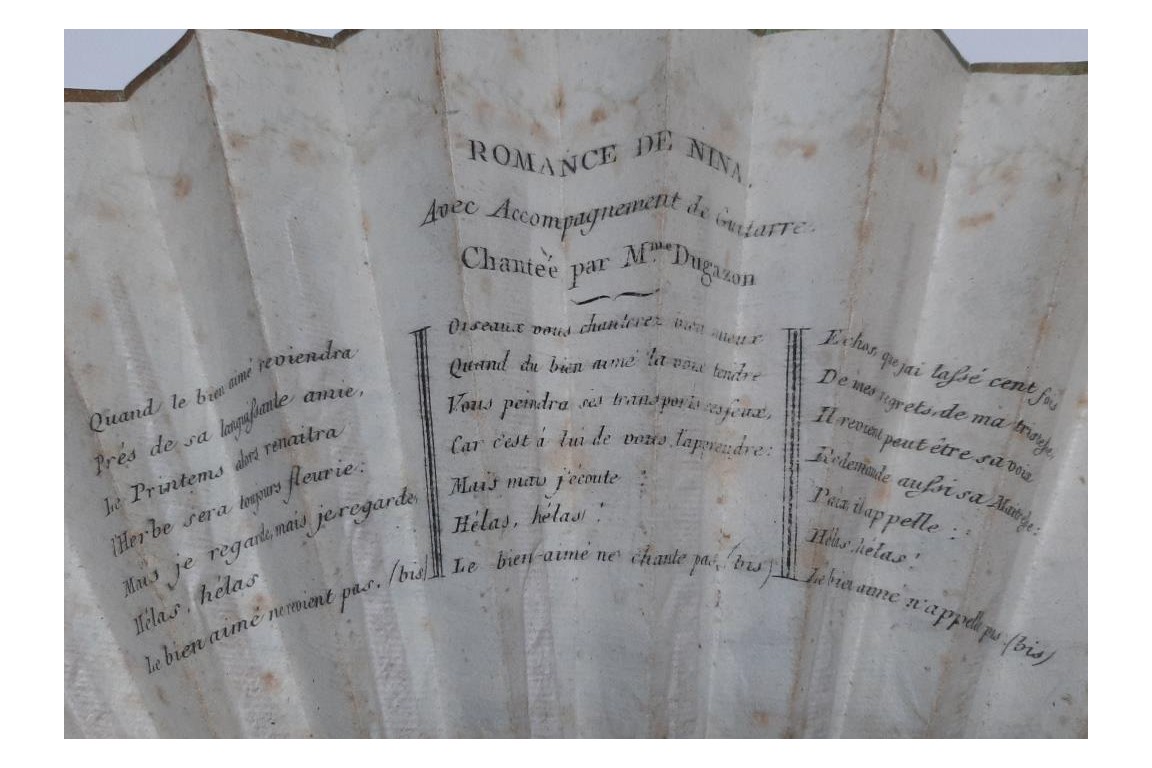 ROMANCE DE NINA.
Avec Accompagnement de Guitarre.
Chanteè par M.me Dugazon
Quand le bien aimé reviendra
Prés de sa languissante amie,
Le Printems alors renaitra
l'Herbe sera toujours fleurie:
Mais je regarde, mais je regarde,
Hélas, hélas
Le bien aimé ne revient pas. (bis)
Oiseaux vous chanterez bien mieux
Quand du bien aimé la voix tendre
Vous peindra ses transports ses feux,
Car c'est á lui de vous l'apprendre:
Mais mais j'écoute :
Hélas, hélas!
Le bien-aimé ne chante pas. (bis)
Echos, que j'ai lassé cent fois
De mes regrets, de ma tristesse,
Il revient peut être sa voix
Redemande aussi sa Maitresse:
Paix, il appelle ::
Hélas, hélas!
Le bien aimé n'appelle pas. (bis)